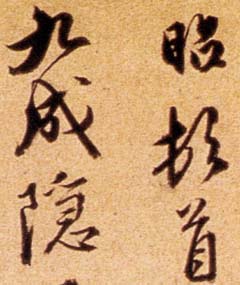 昭頓首
九成隱